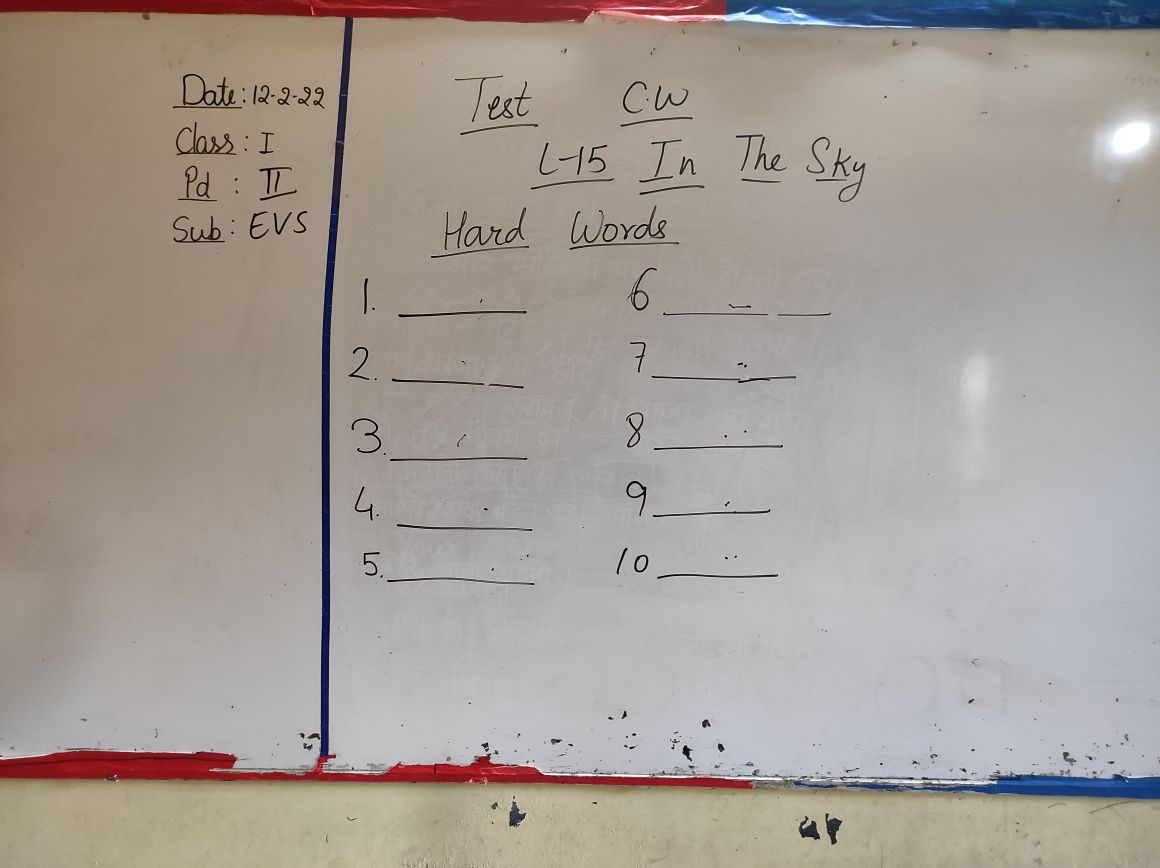 Date: 12-2-22
Class: I
Pd : II
Sub: EVS
Test C.W
L-15 In The Sky
Hard Words
1. 6
2. 7
3. 8
4. 9
5. 10